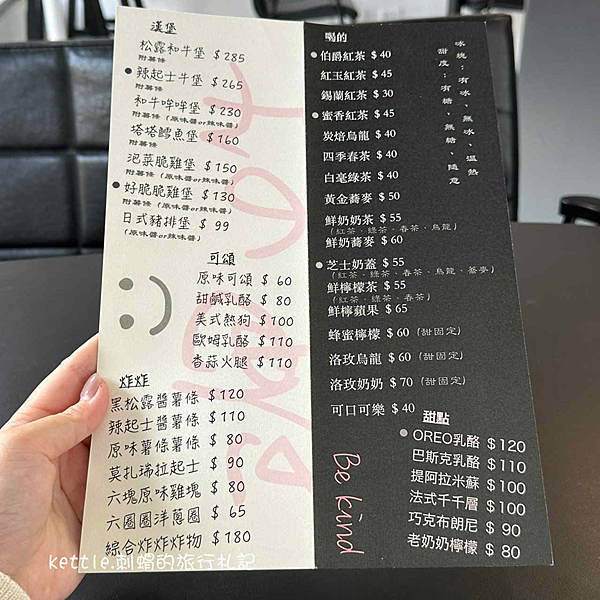 漢堡
松露和牛堡 $285
附薯條
辣起士牛堡 $265
附薯條
和牛哞哞堡 $230
附薯條 (原味醬or辣味醬)
塔塔鱈魚堡 $160
附薯條
泡菜脆雞堡 $150
附薯條 (原味醬or辣味醬)
好脆脆雞堡 $130
附薯條 (原味醬or辣味醬)
日式豬排堡 $ 99
(原味醬or辣味醬)
可頌
原味可頌 $ 60
甜鹹乳酪 $ 80
美式熱狗 $100
歐姆乳酪 $110
香蒜火腿 $110
炸炸
黑松露醬薯條 $120
辣起士醬薯條 $110
原味薯條薯條 $ 80
莫扎瑞拉起士 $ 90
六塊原味雞塊 $ 80
六圈圈洋蔥圈 $ 65
綜合炸炸炸物 $180
喝的
冰塊：有冰、無冰、溫熱
甜度：有糖、無糖、隨意
伯爵紅茶 $ 40
紅玉紅茶 $ 45
錫蘭紅茶 $ 30
蜜香紅茶 $ 45
炭焙烏龍 $ 40
四季春茶 $ 40
白毫綠茶 $ 40
黃金蕎麥 $ 50
鮮奶奶茶 $ 55
(紅茶．綠茶．春茶．烏龍)
鮮奶蕎麥 $ 60
芝士奶蓋 $ 55
(紅茶．綠茶．春茶．烏龍．蕎麥)
鮮檸檬茶 $ 55
(紅茶．綠茶．春茶)
鮮檸蘋果 $ 65
蜂蜜檸檬 $ 60 (甜固定)
洛玫烏龍 $ 60 (甜固定)
洛玫奶奶 $ 70 (甜固定)
可口可樂 $ 40
甜點
OREO乳酪 $120
巴斯克乳酪 $110
提阿拉米蘇 $100
法式千千層 $100
巧克布朗尼 $ 90
老奶奶檸檬 $ 80
Be kind
kettle.刺蝟的旅行札記